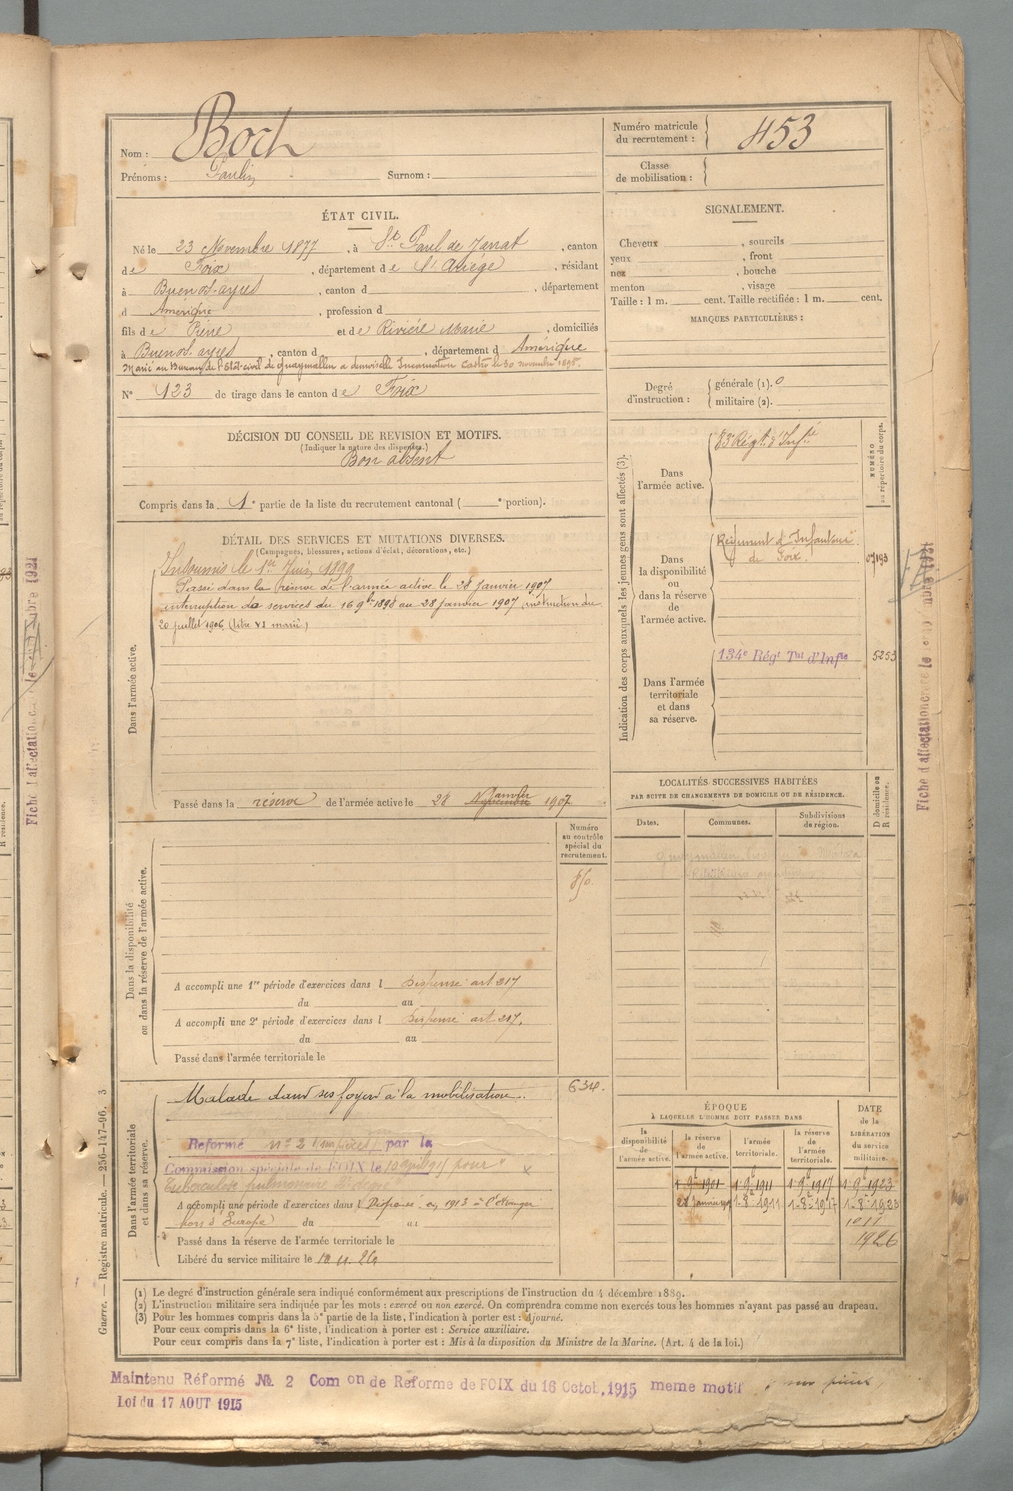 Nom : Boch
Prénoms : Paulin Surnom :
Numéro matricule
du recrutement : 453
Classe
de mobilisation :
ÉTAT CIVIL.
Né le 23 Novembre 1877, à St Paul de Jarrat, canton
de Foix, département de l'Ariége, résidant
à Buenos-ayres, canton d , département
d Amérique, profession d
fils de Pierre et de Rivière Marie, domiciliés
à Buenos-ayres, canton d , département d Amérique
Marié au Bureau de l'Etat-civil de Guaymallen a demoiselle Incarnation Castro le 30 novembre 1895.
N° 123 de tirage dans le canton de Foix
SIGNALEMENT.
Cheveux , sourcils
yeux , front
nez , bouche
menton , visage
Taille : 1 m. cent. Taille rectifiée : 1 m. cent.
MARQUES PARTICULIÈRES :
Degré
d'instruction :
générale (1). 0
militaire (2).
DÉCISION DU CONSEIL DE REVISION ET MOTIFS.
(Indiquer la nature des dispenses.)
Bon absent
Compris dans la 1e partie de la liste du recrutement cantonal ( e portion).
DÉTAIL DES SERVICES ET MUTATIONS DIVERSES.
(Campagnes, blessures, actions d'éclat, décorations, etc.)
Dans l'armée active.
Insoumis le 1er Juin 1899
Passé dans la réserve de l'armée active le 28 Janvier 1907
interruption de services du 16 9bre 1898 au 28 janvier 1907, instruction du
20 juillet 1906 (titre VI marié)
Passé dans la réserve de l'armée active le 28 Novembre Janvier 1907
Indication des corps auxquels les jeunes gens sont affectés (3).
NUMÉRO
au répertoire du corps.
Dans
l'armée active.
83e Régt d'Infie
Dans
la disponibilité
ou
dans la réserve
de
l'armée active.
Régiment d'Infanterie
de Foix.
Dans l'armée
territoriale
et dans
sa réserve.
134e Régt Tal d'Infie
5253
LOCALITÉS SUCCESSIVES HABITÉES
PAR SUITE DE CHANGEMENTS DE DOMICILE OU DE RÉSIDENCE.
Dates.
Communes.
Subdivisions
de région.
D domicile ou
R résidence.
Dans la disponibilité
ou dans la réserve de l'armée active.
Numéro
au contrôle
spécial du
recrutement.
A accompli une 1re période d'exercices dans l Dispensé art 217
du au
A accompli une 2e période d'exercices dans l Dispensé art 217.
du au
Passé dans l'armée territoriale le
Dans l'armée territoriale
et dans sa réserve.
634.
Malade dans ses foyers à la mobilisation.
Reformé n° 2 par la
Commission spéciale de FOIX le pour
Tuberculose pulmonaire 2e degré
A accompli une période d'exercices dans l Dispensé en 1913 à l'étranger
hors d'Europe du au
Passé dans la réserve de l'armée territoriale le
Libéré du service militaire le 10.11.26
ÉPOQUE
À LAQUELLE L'HOMME DOIT PASSER DANS
la
disponibilité
de
l'armée active.
la réserve
de
l'armée active.
l'armée
territoriale.
la réserve
de
l'armée
territoriale.
DATE
de la
LIBÉRATION
du service
militaire.
1 9bre 1901 1 9bre 1911 1 9bre 1917 1 9bre 1923
28 Janvier 1907 1-8e 1911 1-8e 1917 1-8e 1923
1926
(1) Le degré d'instruction générale sera indiqué conformément aux prescriptions de l'instruction du 4 décembre 1889.
(2) L'instruction militaire sera indiquée par les mots : exercé ou non exercé. On comprendra comme non exercés tous les hommes n'ayant pas passé au drapeau.
(3) Pour les hommes compris dans la 5e partie de la liste, l'indication à porter est : Ajourné.
Pour ceux compris dans la 6e liste, l'indication à porter est : Service auxiliaire.
Pour ceux compris dans la 7e liste, l'indication à porter est : Mis à la disposition du Ministre de la Marine. (Art. 4 de la loi.)
Guerre. — Registre matricule. — 256-147-96. 3
Maintenu Réformé № 2 Com on de Réforme de FOIX du 16 Octob. 1915 meme motif
Loi du 17 AOUT 1915